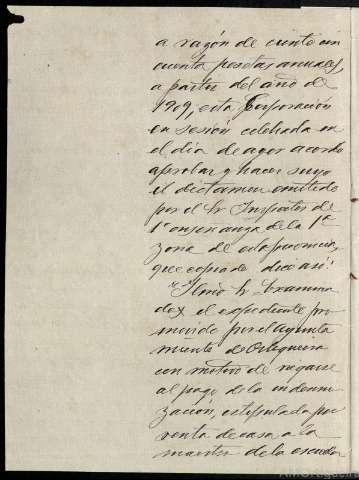 a razón de ciento cin
cuenta pesetas anuales,
a partir del año de
1909, esta Corporación
en sesión celebrada en
el dia de ayer acordó
aprobar y hacer suyo
el dictamen emitido
por el Sr Inspector de
1ª enseñanza de la 1ª
zona de esta provincia,
que copiado dice asi:
"Ilmo Sr Examina
do el expediente pro
movido por el Ayunta
miento de Ortigueira
con motivo de negarse
al pago de la indem
nización, estipulada por
renta de casa a la
maestra de la escuela